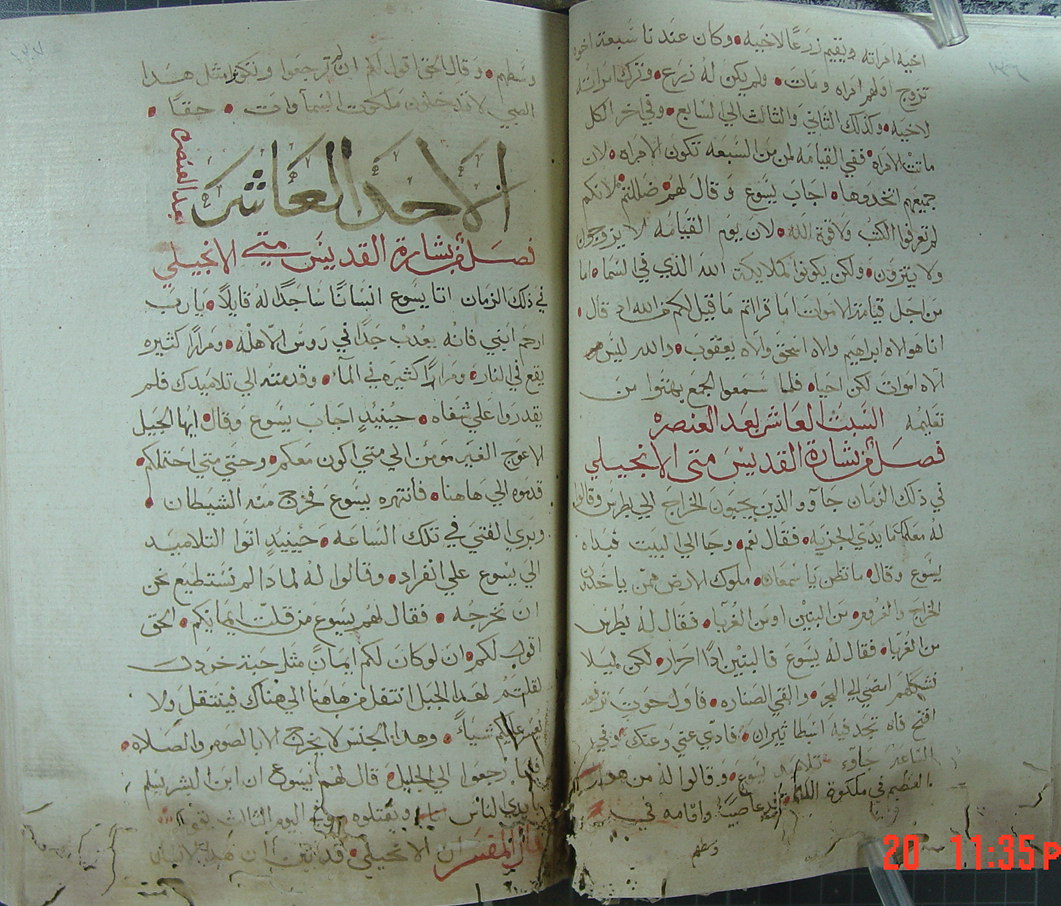 اخيه امراته ويقيم زرعًا لاخيه وكان عندنا سبعة اخوه
تزوج اولهم امراه ومات ولم يكن له زرع وترك امراته
لاخيه وكذلك الثاني والثالث الي السابع وفي اخر الكل
ماتت الامراه ففي القيامه لمن من السبعه تكون الامراه لان
جميعهم اتخدوها اجاب يسوع وقال لهم ضللتم لانكم
لم تعرفوا الكتب ولا قوة الله لان يوم القيامه لا يزوجون
ولا يتزوجون ولكن يكونوا كملايكة الله الذي في السما اما
من اجل قيامة الاموات اما قراتم ما قيل لكم من الله اد قال
انا هو الاه ابراهيم والاه اسحق والاه يعقوب والله ليس هو
الاه اموات لكن احيا فلما سمعوا الجمع بهتوا من
تعليمه السبت العاشر بعد العنصره
فصل من بشارة القديس متي الانجيلي
في ذلك الزمان جاوو الذين يجبون الخراج الي بطرس وقالوا
له معلمكما يدي الجزيه فقال نعم وجا الي البيت فبداه
يسوع وقال ما تظن يا سمعان ملوك الارض ممن ياخدون
الخراج من البنين او من الغربا فقال له بطرس
من الغربا فقال له يسوع فالبنين ادًا احرار لكن ليلا
نشككهم امضي الي البحر والقي الصناره فاول حوت
افتح فاه تجد فيه اسطاتيران فادي عني وعنك وفي
الساعه جاوو يسوع وقالوا له من هو
العظيم في ملكوة الله صبيًا واقامه في
وسطهم
وسطهم وقال الحق اقول لكم ان لم ترجعوا وتكونوا مثل هدا
الصبي لا تدخلون ملكوت السماوات حقًا
الاحد العاشر
بعد العنصره
فصل من بشارة القديس متي الانجيلي
في ذلك الزمان اتا يسوع انسانًا ساجدًا له قايلاً يا رب
ارحم ابني فانه يعدب جدًا في روس الاهله ومرارًا كثيره
يقع في النار ومرارًا كثيره في الماء وقدمته الي تلاميدك فلم
يقدروا علي شفاه حينيدٍ اجاب يسوع وقال ايها الجيل
الاعوج الغير مومن الي متي اكون معكم وحتي متي احتملكم
قدموه الي هاهنا فانتهره يسوع فخرج منه الشيطان
وبري الفتي في تلك الساعه حينيدٍ اتوا التلاميد
الي يسوع علي انفراد وقالوا له لمادا لم نستطيع نحن
ان نخرجه فقال لهم يسوع من قلت ايمانكم الحق
اقول لكم ان لو كان لكم ايمانً مثل حبة خردل
لقلتم لهدا الجبل انتقل من هاهنا الي هناك فينتقل ولا
يعسر عليكم شياً وهدا الجنس لا يخرج الا بالصوم والصلاه
رجعوا الي الجليل قال لهم يسوع ان ابن البشر يسلم
بايدي الناس ويقتلوه اليوم الثالث يقوم
قال المفسر ان الانجيلي قد